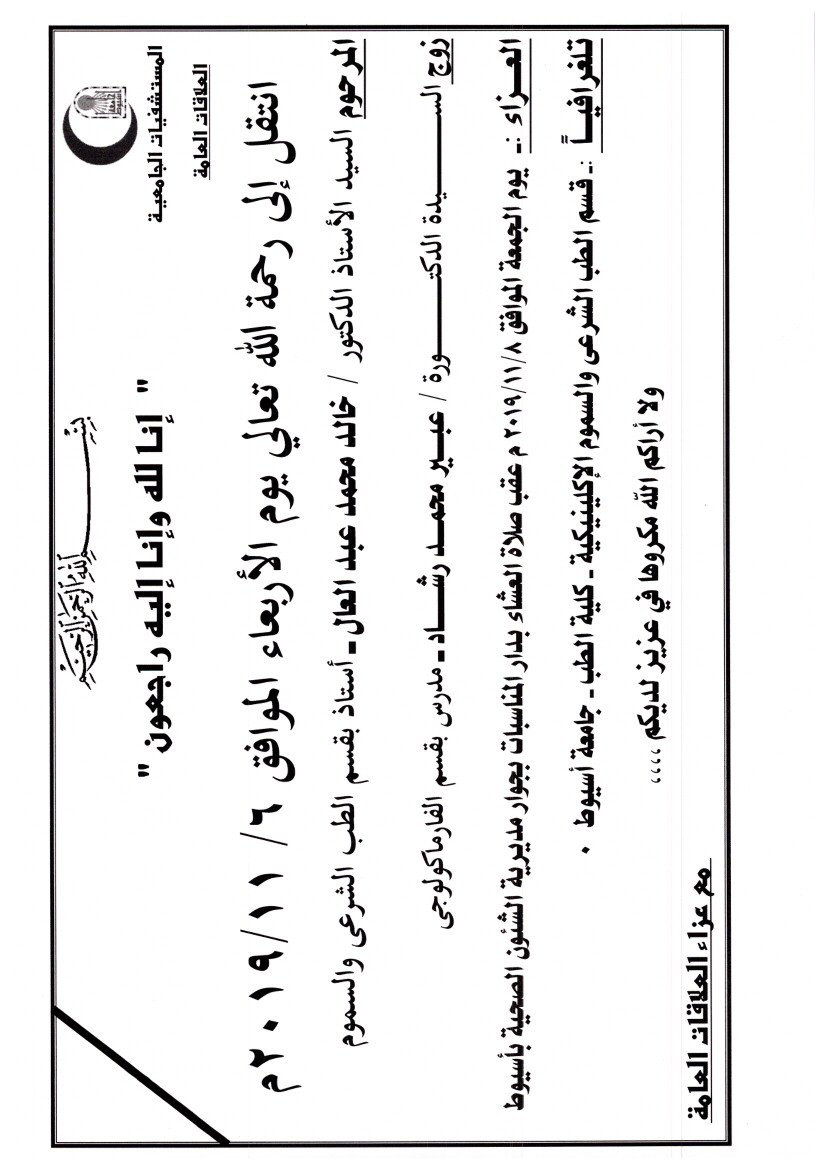 المستشفيات الجامعية
العلاقات العامة
بسم الله الرحمن الرحيم
" إنا لله وإنا إليه راجعون "
انتقل إلى رحمة الله تعالي يوم الأربعاء الموافق ٦ /٢٠١٩/١١م
المرحوم السيد الأستاذ الدكتور / خالد محمد عبد العال ـ أستاذ بقسم الطب الشرعى والسموم
زوج الســـــيدة الدكتـــــورة / عبـير محمـد رشـاد ـ مدرس بقسم الفارماكولوجى
العـزاء :ـ يوم الجمعة الموافق ٢٠١٩/١١/٨ م عقب صلاة العشاء بدار المناسبات بجوار مديرية الشئون الصحية بأسيوط
تلغرافيـاً :ـ قسم الطب الشرعى والسموم الإكلينيكية ـ كلية الطب ـ جامعة أسيوط .
ولا أراكم الله مكروها في عزيز لديكم ،،،،
مع عزاء العلاقات العامة